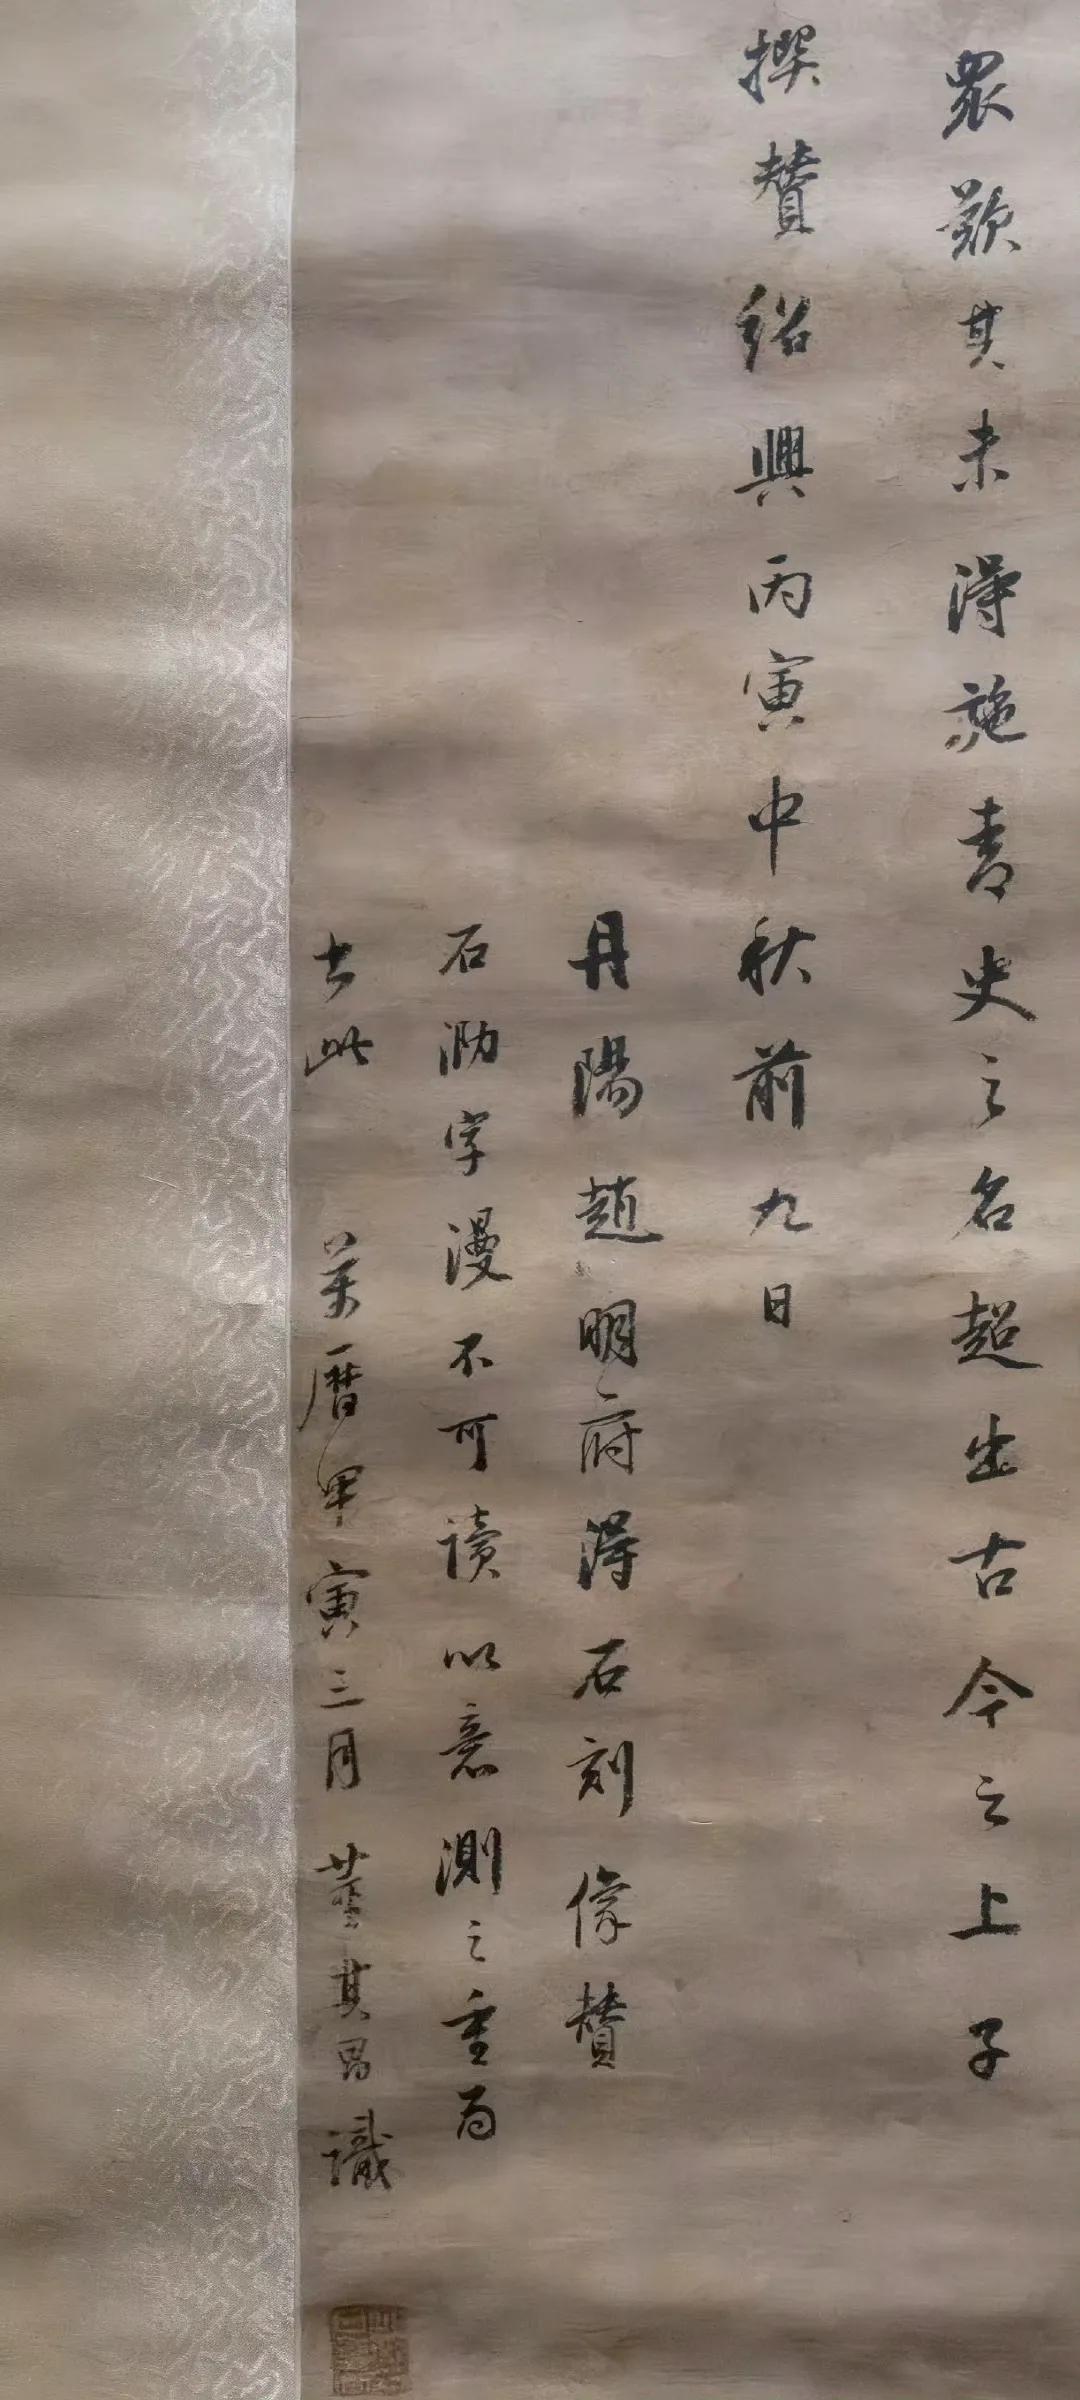 眾歎其未得施青史之名超出古今之上子
撰贊紹興丙寅中秋前九日
丹陽趙明府得石刻像贊
石泐字漫不可讀以意測之重為
書此 萬曆甲寅三月 董其昌識